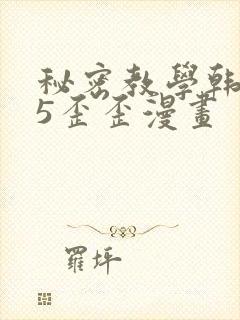 秘密教學韩
5歪歪漫畫
羅坪